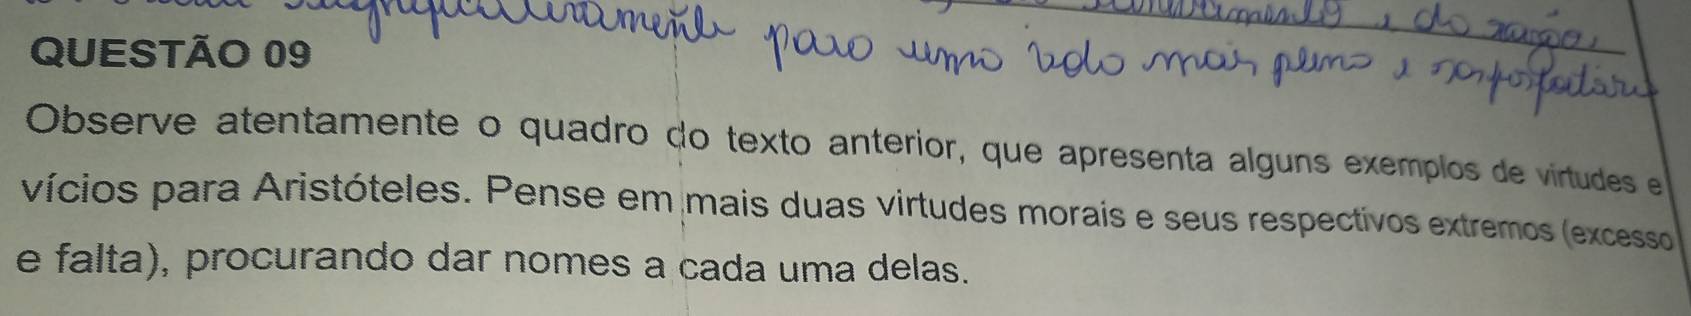 para uma vida mais plena e
QUESTÃO 09
Observe atentamente o quadro do texto anterior, que apresenta alguns exemplos de virtudes e
vícios para Aristóteles. Pense em mais duas virtudes morais e seus respectivos extremos (excesso
e falta), procurando dar nomes a cada uma delas.